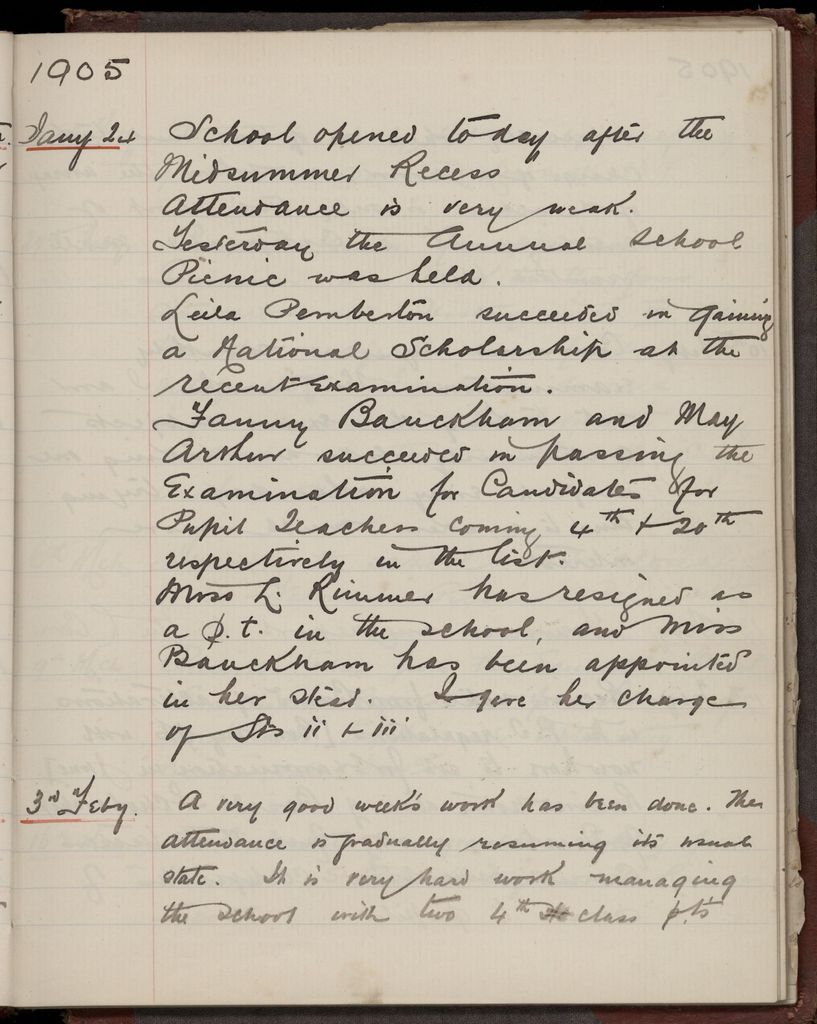 1905
Jany 24 School opened to day after the
Midsummer Recess
Attendance is very weak.
Yesterday the Annual School
Picnic was held.
Leila Pemberton succeeded in gaining
a National Scholarship at the
recent Examination.
Fanny Bauckham and May
Arthur succeeded in passing the
Examination for Candidates for
Pupil Teachers coming 4th & 20th
respectively in the list.
Miss L. Rimmer has resigned as
a p.t. in the school, and Miss
Bauckham has been appointed
in her stead. I gave her charge
of Sts ii & iii
3rd Feby. A very good week's work has been done. The
attendance is gradually resuming its usual
state. It is very hard work managing
the school with two 4th class p.t's